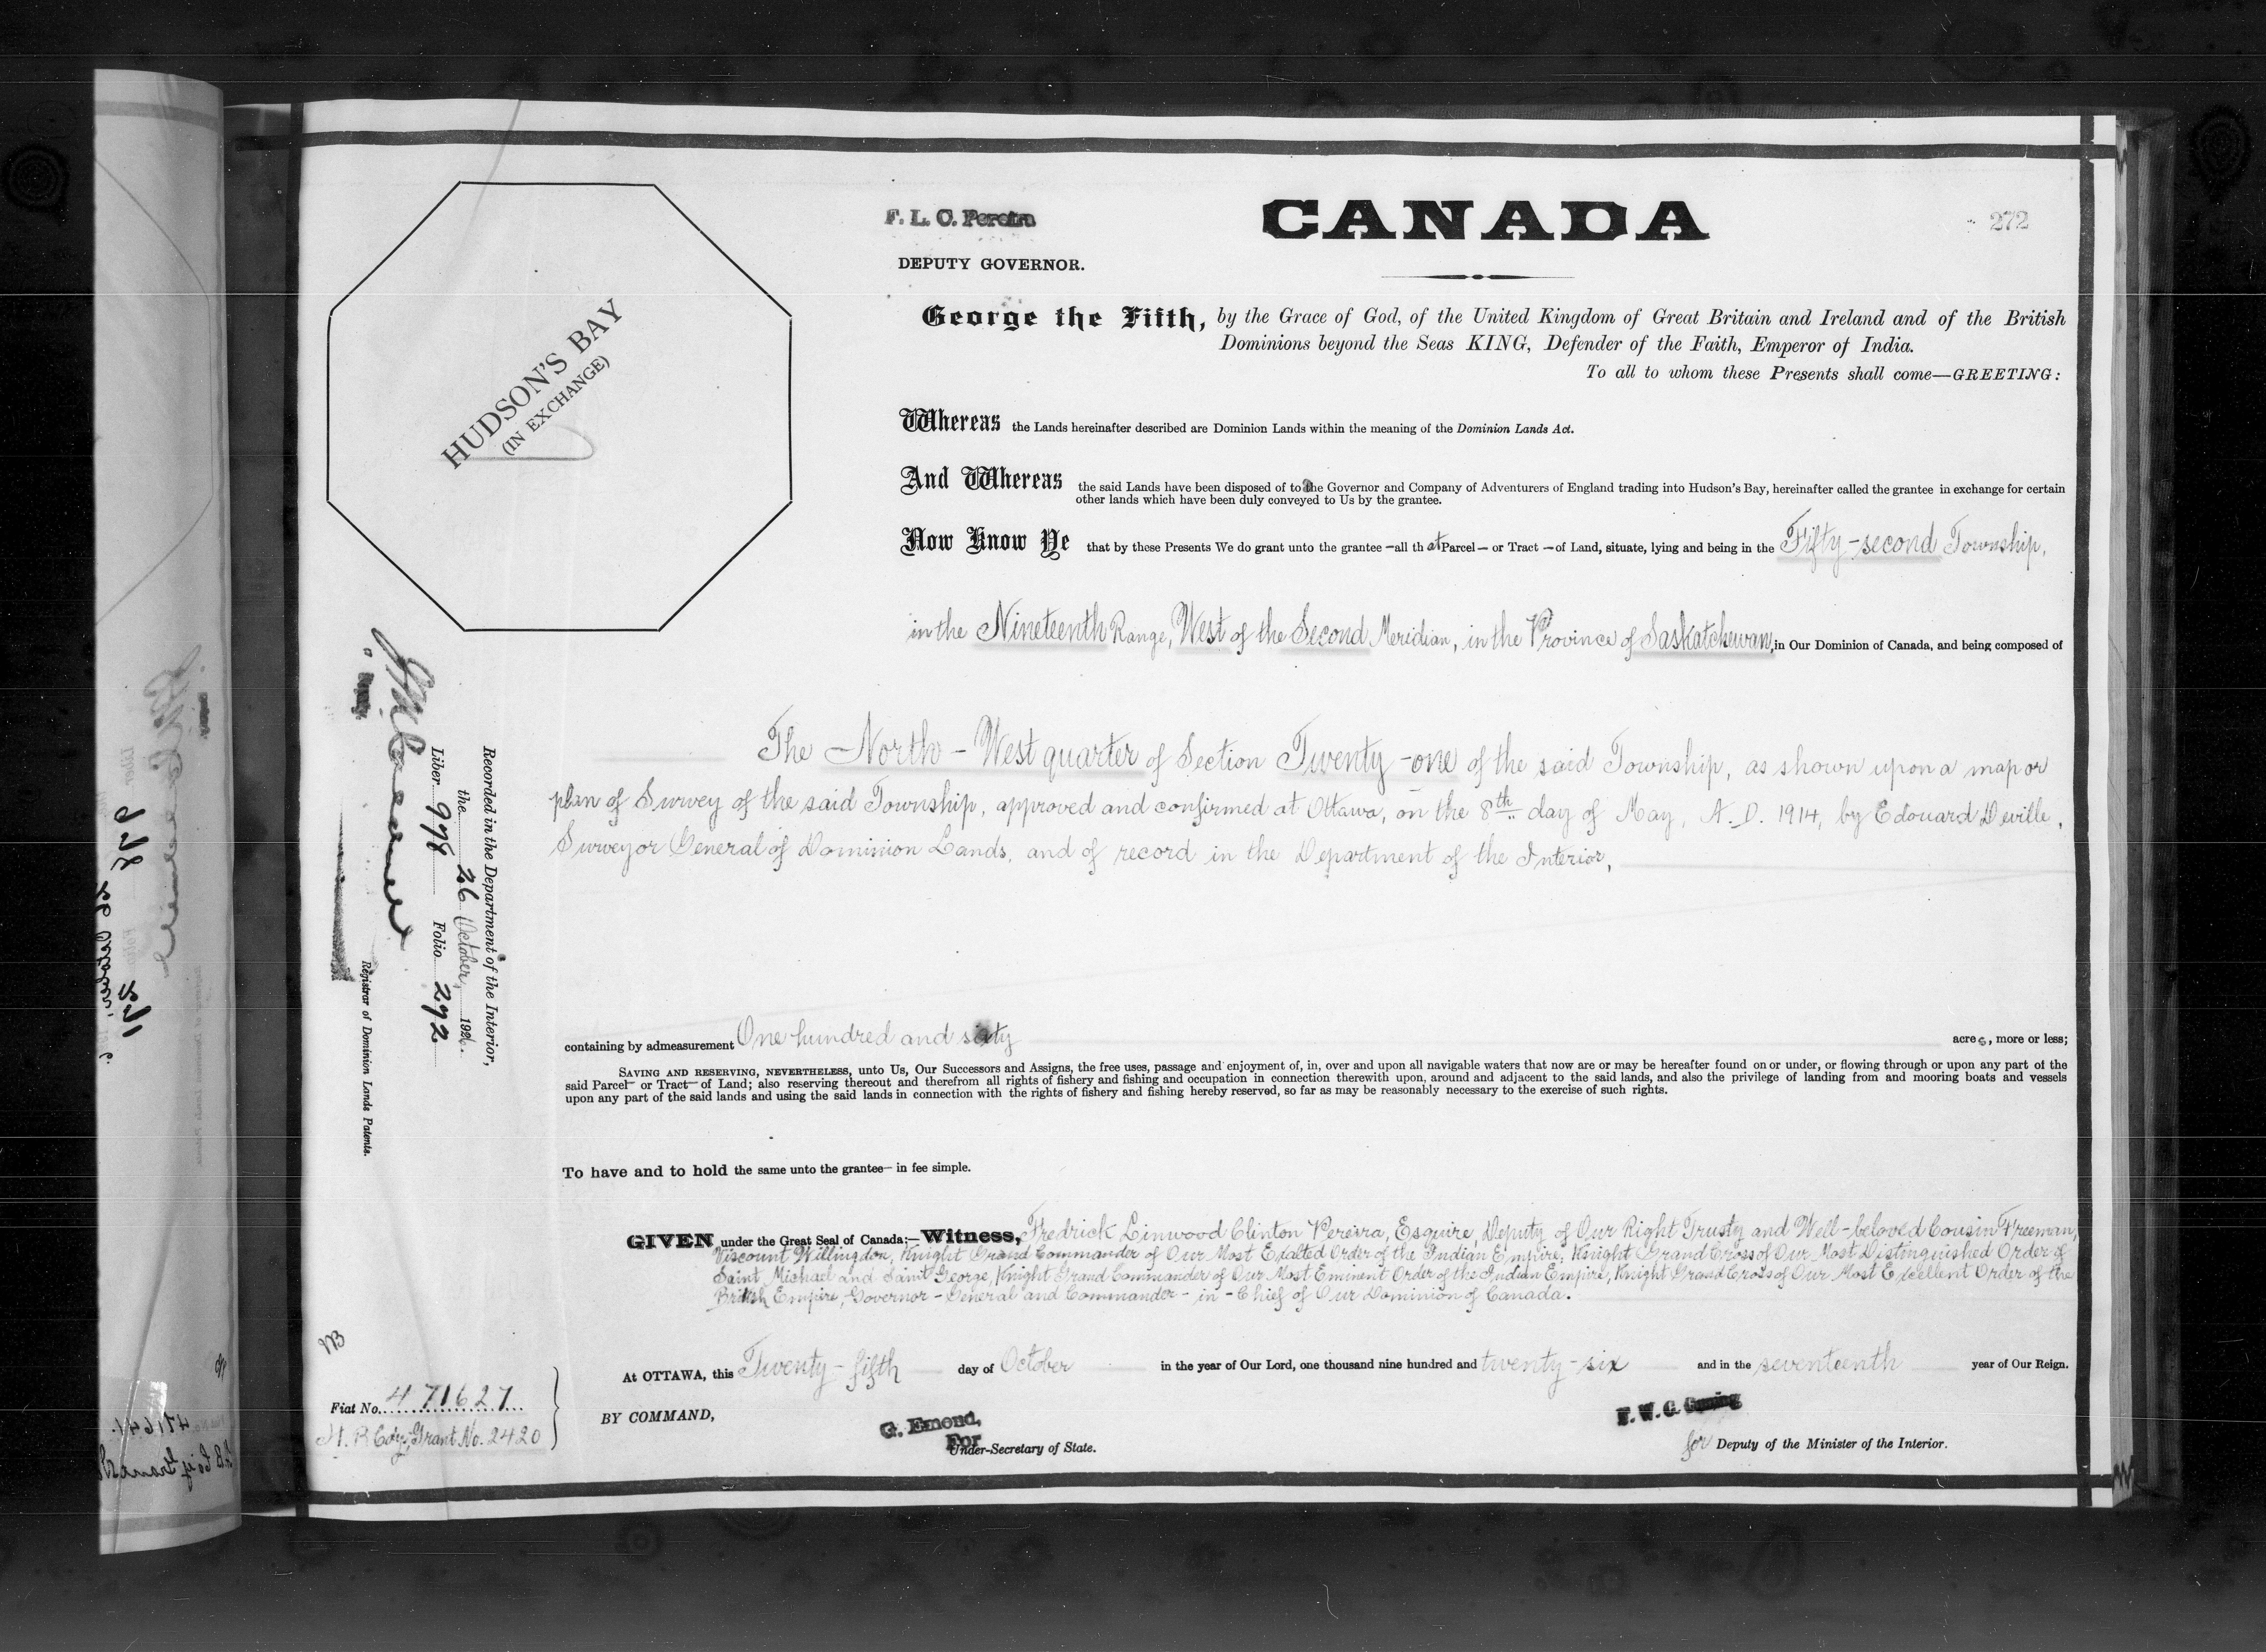 F. L. C. Pereira
DEPUTY GOVERNOR.
CANADA
272
HUDSON'S BAY
(IN EXCHANGE)
George the Fifth, by the Grace of God, of the United Kingdom of Great Britain and Ireland and of the British
Dominions beyond the Seas KING, Defender of the Faith, Emperor of India.
To all to whom these Presents shall come—GREETING:
Whereas the Lands hereinafter described are Dominion Lands within the meaning of the Dominion Lands Act.
And Whereas the said Lands have been disposed of to the Governor and Company of Adventurers of England trading into Hudson's Bay, hereinafter called the grantee in exchange for certain
other lands which have been duly conveyed to Us by the grantee.
Now Know Ye that by these Presents We do grant unto the grantee—all that Parcel—or Tract—of Land, situate, lying and being in the Fifty-second Township,
in the Nineteenth Range, West of the Second Meridian, in the Province of Saskatchewan, in Our Dominion of Canada, and being composed of
The North-West quarter of Section Twenty-one of the said Township, as shown upon a map or
plan of Survey of the said Township, approved and confirmed at Ottawa, on the 8th day of May, A.D. 1914, by Edouard Deville,
Surveyor General of Dominion Lands, and of record in the Department of the Interior,
containing by admeasurement One hundred and sixty acres, more or less;
SAVING AND RESERVING, NEVERTHELESS, unto Us, Our Successors and Assigns, the free uses, passage and enjoyment of, in, over and upon all navigable waters that now are or may be hereafter found on or under, or flowing through or upon any part of the
said Parcel—or Tract—of Land; also reserving thereout and therefrom all rights of fishery and fishing and occupation in connection therewith upon, around and adjacent to the said lands, and also the privilege of landing from and mooring boats and vessels
upon any part of the said lands and using the said lands in connection with the rights of fishery and fishing hereby reserved, so far as may be reasonably necessary to the exercise of such rights.
To have and to hold the same unto the grantee—in fee simple.
GIVEN under the Great Seal of Canada:—Witness, Fredrick Linwood Clinton Pereira, Esquire, Deputy of Our Right Trusty and Well-beloved Cousin Freeman,
Viscount Willingdon, Knight Grand Commander of Our Most Exalted Order of the Indian Empire, Knight Grand Cross of Our Most Distinguished Order of
Saint Michael and Saint George, Knight Grand Commander of Our Most Eminent Order of the Indian Empire, Knight Grand Cross of Our Most Excellent Order of the
British Empire, Governor-General and Commander-in-Chief of Our Dominion of Canada.
At OTTAWA, this Twenty-fifth day of October in the year of Our Lord, one thousand nine hundred and twenty-six and in the seventeenth year of Our Reign.
BY COMMAND,
G. Emond,
For
Under-Secretary of State.
for Deputy of the Minister of the Interior.
Recorded in the Department of the Interior,
the 26 October, 1926.
Liber 978 Folio 292
Deputy.
Registrar of Dominion Lands Patents.
Fiat No. 471627
H. B Coy. Grant No. 2420